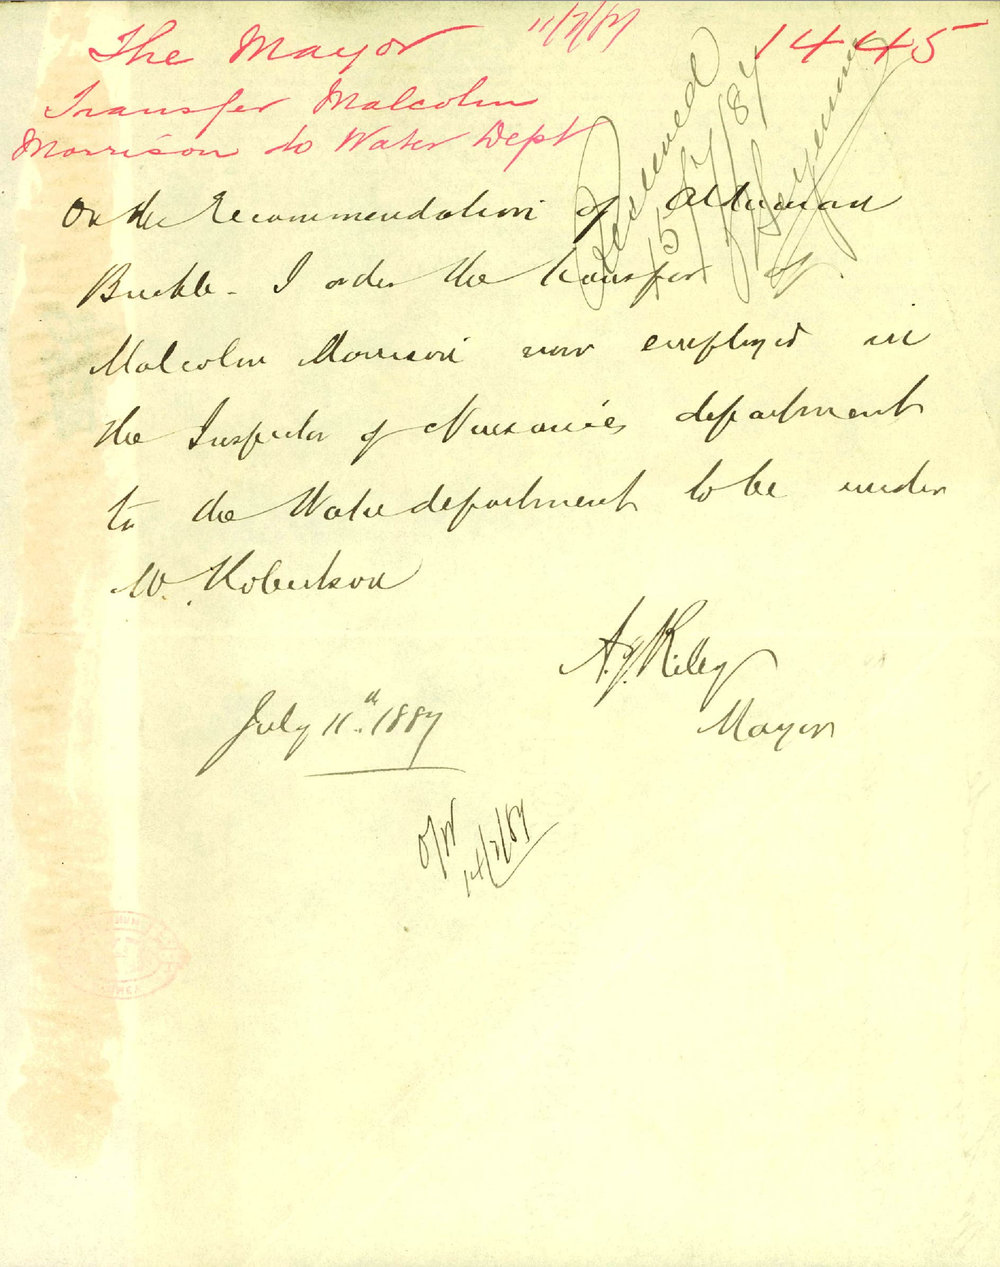 The Mayor 11/7/87 1445
Transfer Malcolm
Morrison to Water Dept
Received
15/7/87
On the Recommendation of Alderman
Buckle - I order the transfer of
Malcolm Morrison now employed in
the Inspector of Nuisances department
to the Water department to be under
W. Robertson
A.J. Riley
Mayor
July 11th 1887
14/7/87